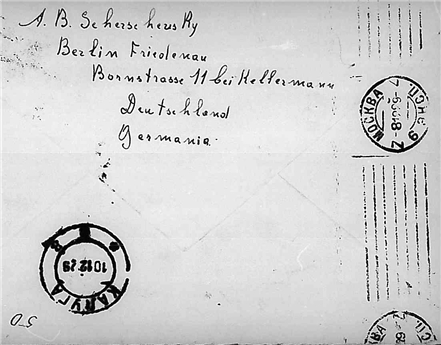 A. B. Scherschevsky
Berlin Friedenau
Bornstrasse 11 bei Kellermann
Deutschland
Germania
МОСКВА
КАЛУГА
10 12 29
50